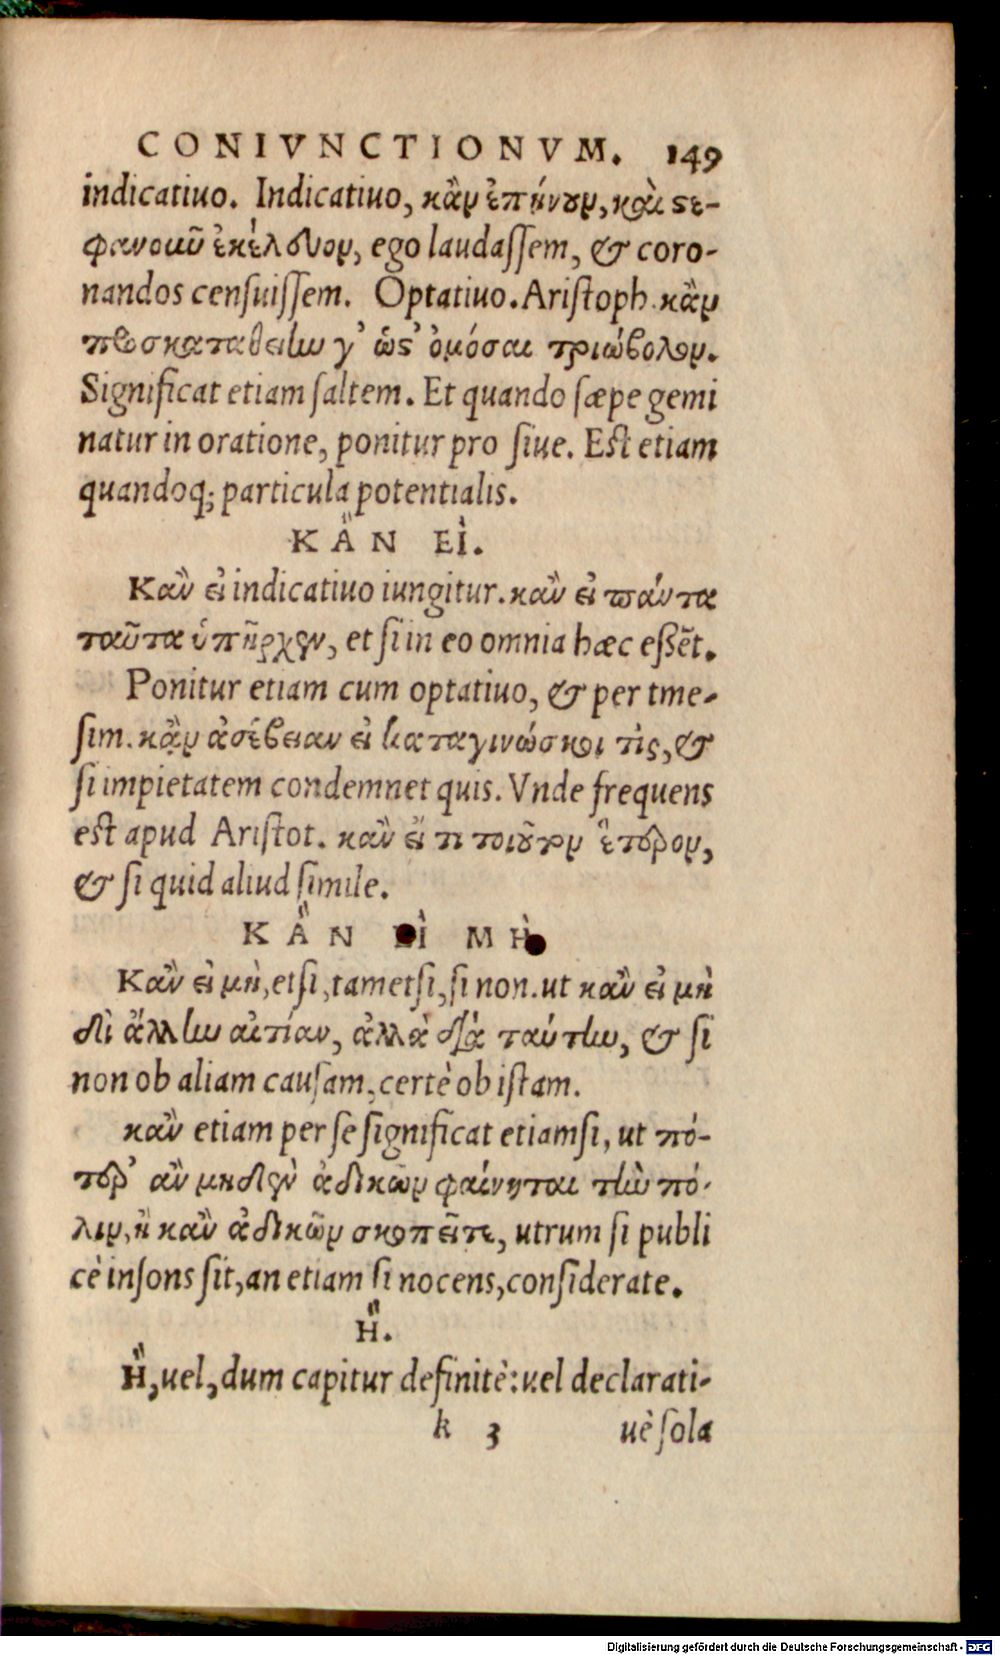 CONIVNCTIONVM. 149
indicatiuo. Indicatiuo, κἂν ἐπῄνουν, καὶ στε-
φανοῦν ἐκέλευον, ego laudaſſem, & coro-
nandos cenſuiſſem. Optatiuo. Ariſtoph. κἂν
προσκαταθείην γ' ὥστ' ὀμόσαι τριώβολον.
Significat etiam ſaltem. Et quando ſæpe gemi
natur in oratione, ponitur pro ſiue. Eſt etiam
quandoq; particula potentialis.
ΚἊΝ ΕἸ.
Κἂν εἰ indicatiuo iungitur. κἂν εἰ πάντα
ταῦτα ὑπῆρχεν, et ſi in eo omnia hæc eſſẽt.
Ponitur etiam cum optatiuo, & per tme-
ſim. κἂν ἀσέβειαν εἰ καταγινώσκοι τὶς, &
ſi impietatem condemnet quis. Vnde frequens
eſt apud Ariſtot. κἂν εἴ τι τοιοῦτον ἕτερον,
& ſi quid aliud ſimile.
ΚἊΝ ΕἸ ΜῊ
Κἂν εἰ μὴ, etſi, tametſi, ſi non. ut κἂν εἰ μὴ
δι ἄλλην αἰτίαν, ἀλλὰ διὰ ταύτην, & ſi
non ob aliam cauſam, certè ob iſtam.
κἂν etiam per ſe ſignificat etiamſi, ut πό-
τερ' ἂν μηδὲν ἀδικῶν φαίνηται τὴν πό-
λιν, ἢ κἂν ἀδικῶν σκοπεῖτε, utrum ſi publi
cè inſons ſit, an etiam ſi nocens, conſiderate.
Ἤ.
Ἤ, uel, dum capitur definitè: uel declarati-
k 3 uè ſola
Digitalisierung gefördert durch die Deutsche Forschungsgemeinschaft - DFG